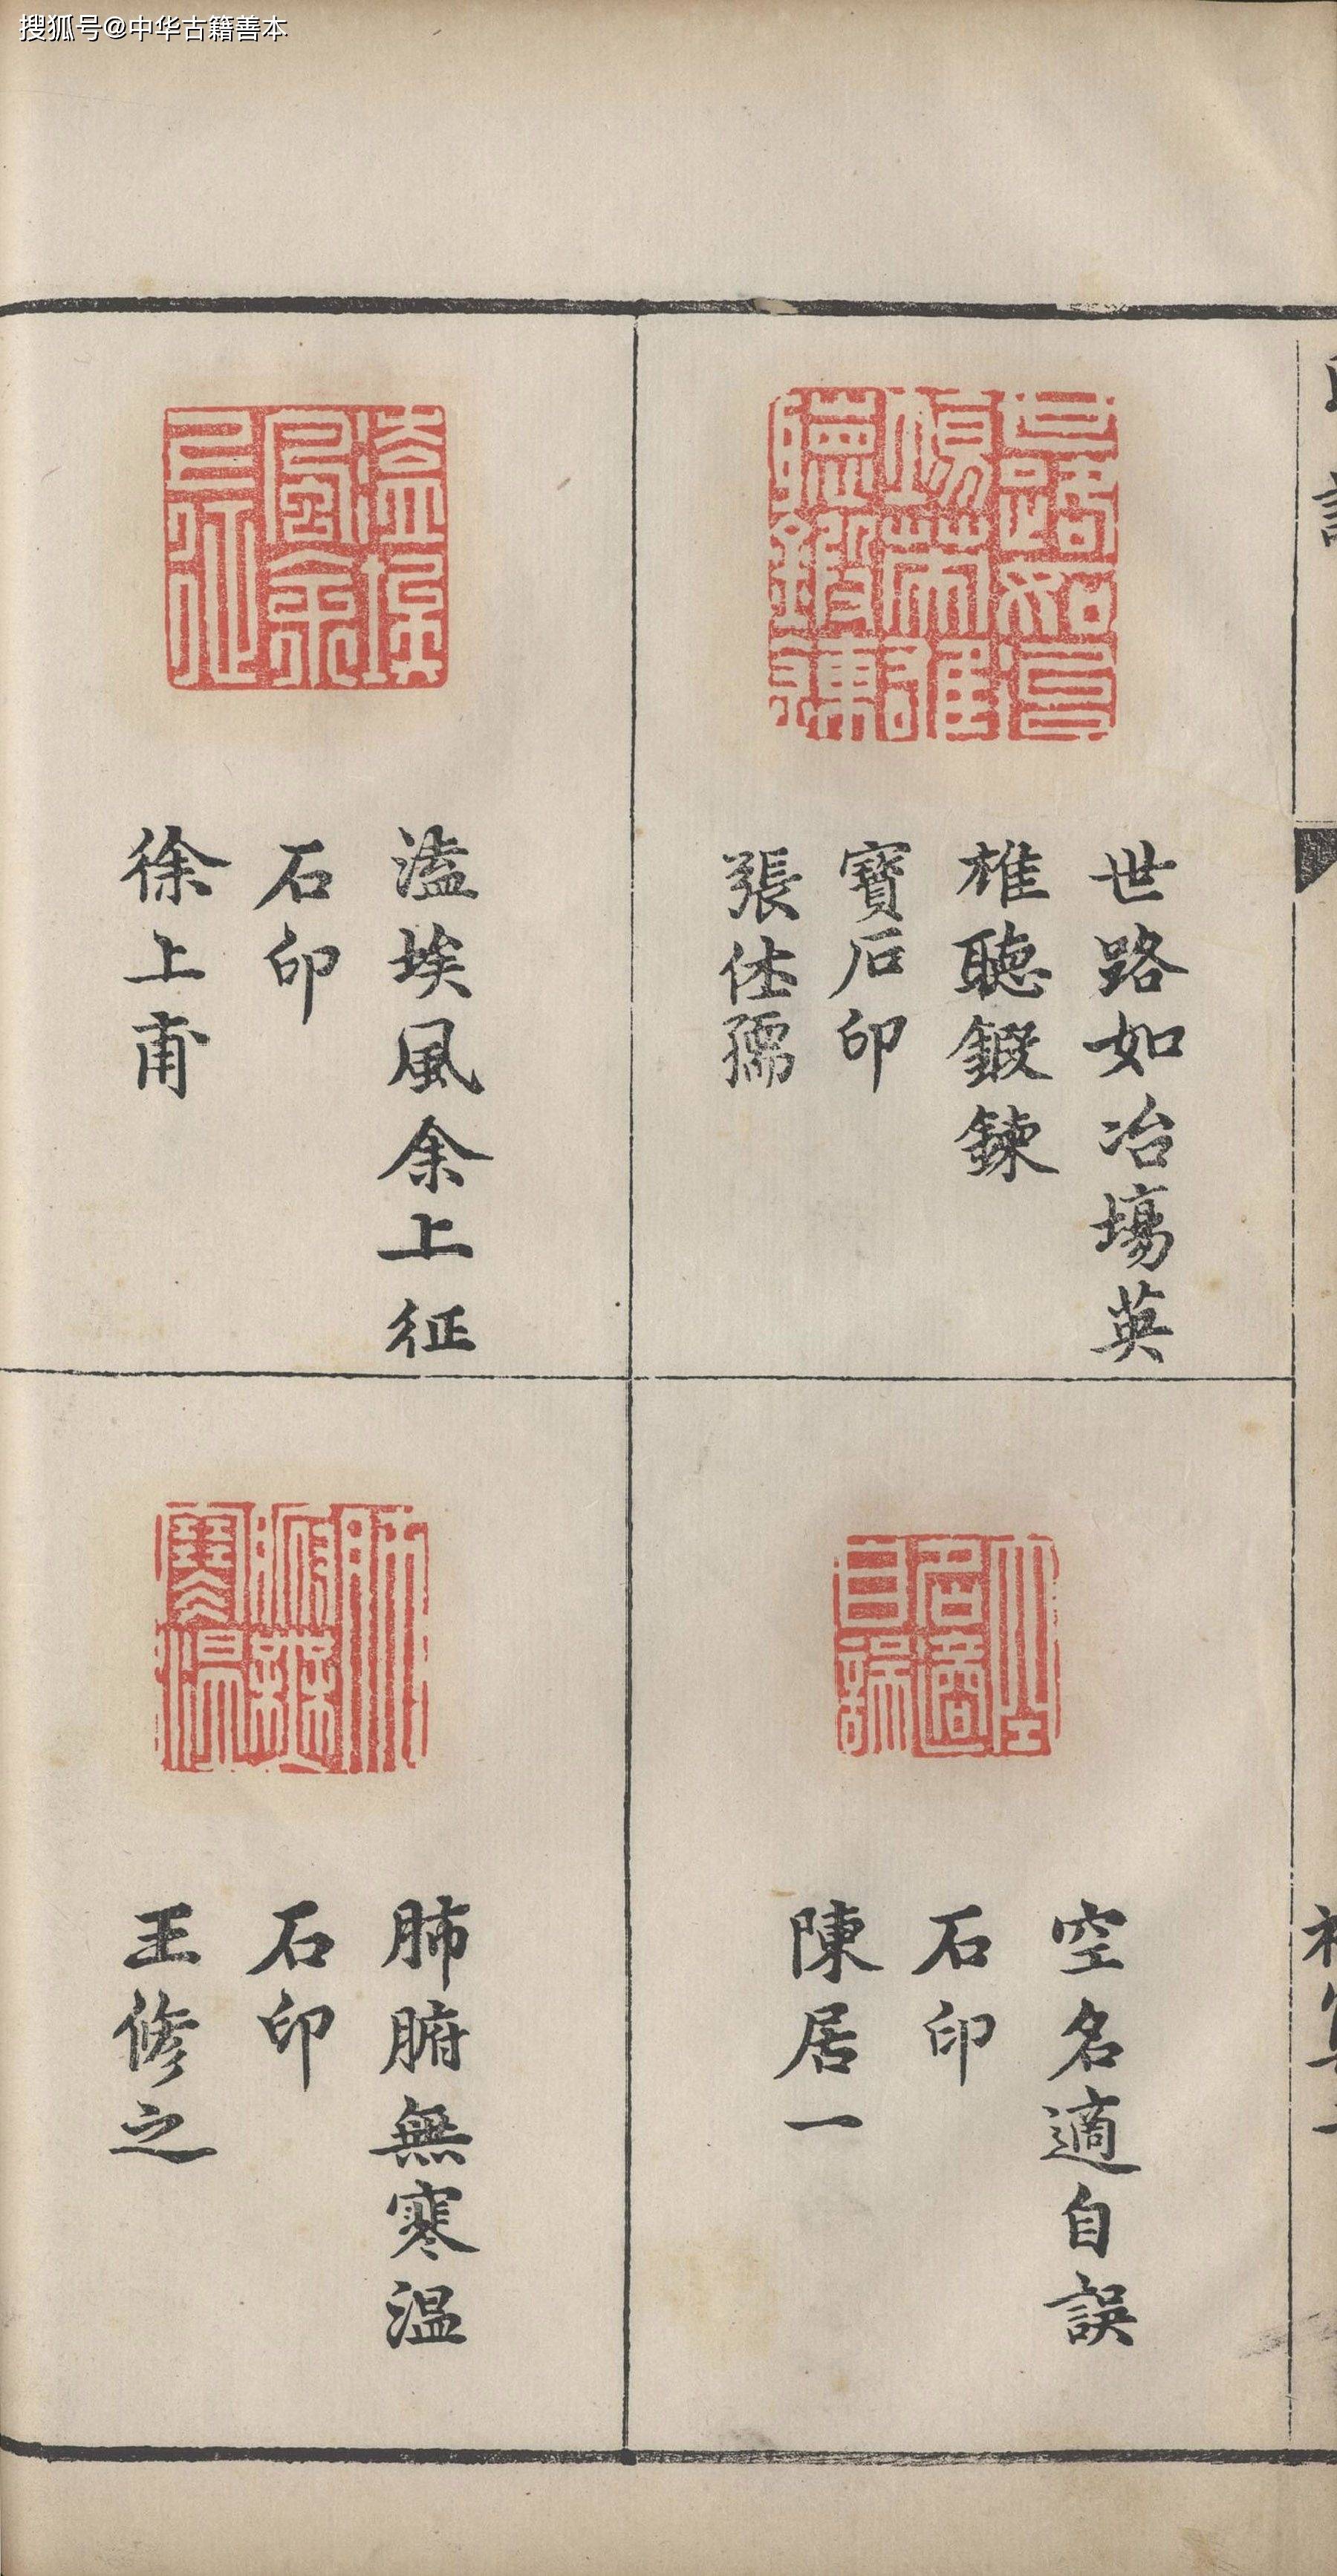 搜狐号@中华古籍善本
世路如冶場英
雄聽鍛鍊
寶石印
張仕孺
空名適自誤
石印
陳居一
溘埃風余上征
石印
徐上甫
肺腑無寒溫
石印
王修之